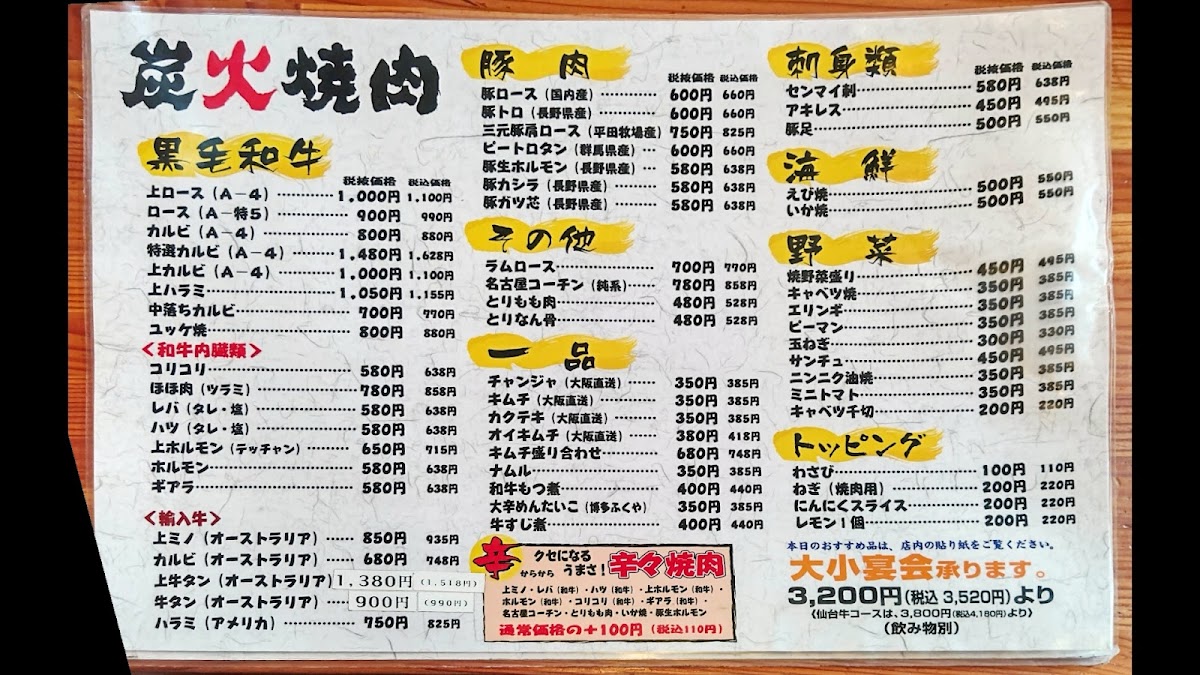 炭火焼肉
黒毛和牛
税抜価格 税込価格
上ロース（A－4）………… 1,000円 1,100円
ロース（A－特5）………… 900円 990円
カルビ（A－4）………… 800円 880円
特選カルビ（A－4）……… 1,480円 1,628円
上カルビ（A－4）………… 1,000円 1,100円
上ハラミ………………… 1,050円 1,155円
中落ちカルビ……………… 700円 770円
ユッケ焼………………… 800円 880円
＜和牛内臓類＞
コリコリ………………… 580円 638円
ほほ肉（ツラミ）………… 780円 858円
レバ（タレ・塩）………… 580円 638円
ハツ（タレ・塩）………… 580円 638円
上ホルモン（テッチャン）……… 650円 715円
ホルモン………………… 580円 638円
ギアラ………………… 580円 638円
＜輸入牛＞
上ミノ（オーストラリア）…… 850円 935円
カルビ（オーストラリア）…… 680円 748円
上牛タン（オーストラリア）1,380円 （1,518円）
牛タン（オーストラリア）… 900円 （990円）
ハラミ（アメリカ）………… 750円 825円
豚肉
税抜価格 税込価格
豚ロース（国内産）……… 600円 660円
豚トロ（長野県産）……… 600円 660円
三元豚肩ロース（平田牧場産）750円 825円
ピートロタン（群馬県産）… 600円 660円
豚生ホルモン（長野県産）… 580円 638円
豚カシラ（長野県産）…… 580円 638円
豚ガツ芯（長野県産）…… 580円 638円
その他
ラムロース……………… 700円 770円
名古屋コーチン（純系）…… 780円 858円
とりもも肉……………… 480円 528円
とりなん骨……………… 480円 528円
一品
チャンジャ（大阪直送）…… 350円 385円
キムチ（大阪直送）……… 350円 385円
カクテキ（大阪直送）……… 350円 385円
オイキムチ（大阪直送）…… 380円 418円
キムチ盛り合わせ……… 680円 748円
ナムル………………… 350円 385円
和牛もつ煮……………… 400円 440円
大辛めんたいこ（博多ふくや） 350円 385円
牛すじ煮……………… 400円 440円
辛 からから
クセになる
うまさ！辛々焼肉
上ミノ・レバ（和牛）・ハツ（和牛）・上ホルモン（和牛）・
ホルモン（和牛）・コリコリ（和牛）・ギアラ（和牛）・
名古屋コーチン・とりもも肉・いか焼・豚生ホルモン
通常価格の＋100円（税込110円）
刺身類
税抜価格 税込価格
センマイ刺……………… 580円 638円
アキレス……………… 450円 495円
豚足………………… 500円 550円
海鮮
えび焼……………… 500円 550円
いか焼……………… 500円 550円
野菜
焼野菜盛り……………… 450円 495円
キャベツ焼……………… 350円 385円
エリンギ……………… 350円 385円
ピーマン……………… 350円 385円
玉ねぎ……………… 300円 330円
サンチュ……………… 450円 495円
ニンニク油焼……………… 350円 385円
ミニトマト……………… 350円 385円
キャベツ千切……………… 200円 220円
トッピング
わさび……………… 100円 110円
ねぎ（焼肉用）………… 200円 220円
にんにくスライス……… 200円 220円
レモン1個……………… 200円 220円
本日のおすすめ品は、店内の貼り紙をご覧ください。
大小宴会承ります。
3,200円（税込 3,520円）より
〈仙台牛コースは、3,800円（税込4,180円）より〉
（飲み物別）